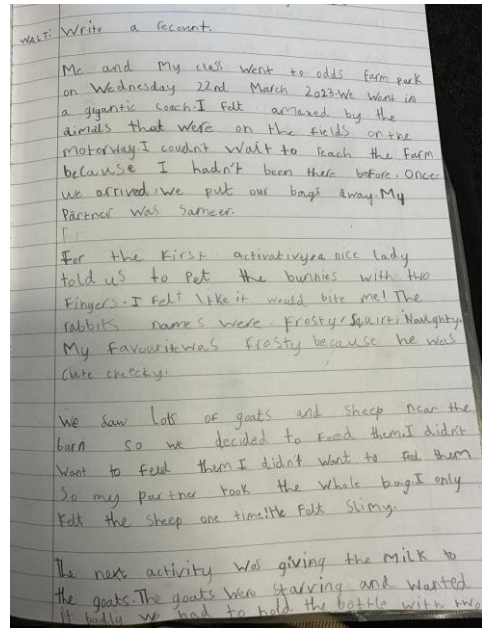 WALT: Write a recount.
Me and My class went to odds farm park
on Wednesday 22nd March 2023. We went in
a gigantic coach. I felt amazed by the
aimals that were on the fields on the
motorway. I coudnt wait to reach the farm
because I hadn't been there before. Once
we arrived, we put our bags away. My
Partner was Sameer.
For
For the first activativyea nice lady
told us to Pet the bunnies with two
Fingers. I felt like it would bite me! The
rabbits names were. Frosty, Squirt, Naughty.
My favourite was Frosty because he was
cute cheeky.
We saw lots of goats and sheep near the
barn so we decided to feed them. I didn't
want to feed them I didn't want to feed them
So my partner took the whole bag. I only
felt the sheep one time! He felt slimy.
The next activity was giving the milk to
the goats. The goats were starving and wanted
it badly we had to hold the bottle with two